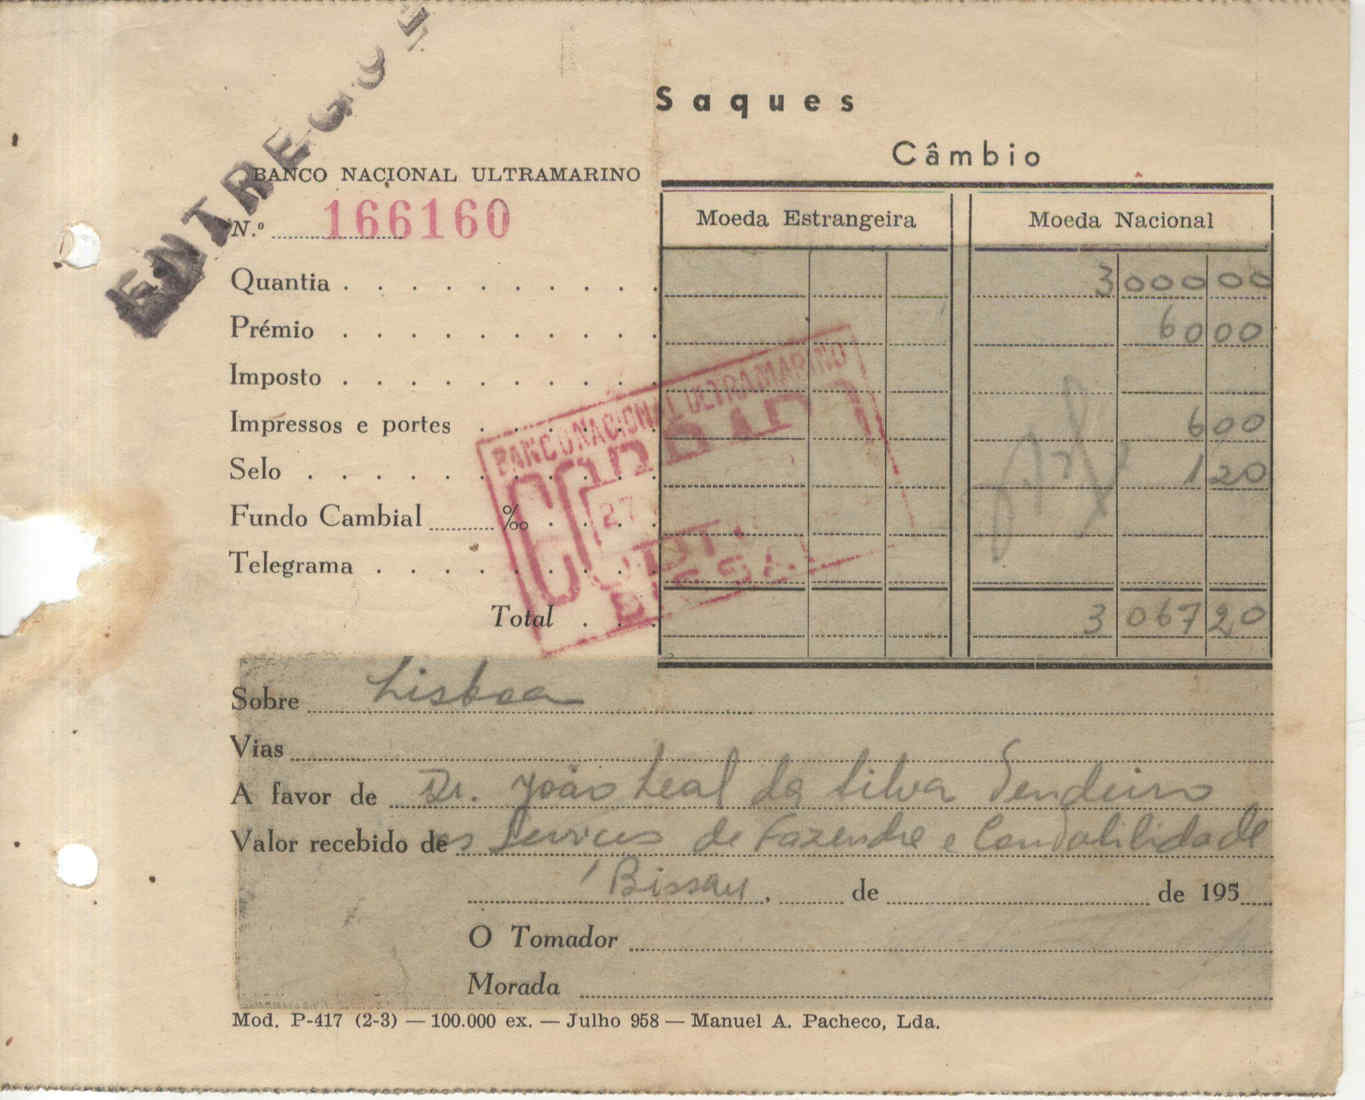 ENTREGUE
Saques
Câmbio
BANCO NACIONAL ULTRAMARINO
N.º 166160
Moeda Estrangeira Moeda Nacional
Quantia 3 000 00
Prémio 60 00
Imposto
Impressos e portes 6 00
Selo 1 20
Fundo Cambial ‰
Telegrama
Total 3 067 20
BANCO NACIONAL ULTRAMARINO
27
BISSAU
Sobre Lisboa
Vias
A favor de Dr. João Leal da Silva Tendeiro
Valor recebido de os Serviços de Fazenda e Contabilidade
Bissau, de de 195
O Tomador
Morada
Mod. P-417 (2-3) — 100.000 ex. — Julho 958 — Manuel A. Pacheco, Lda.